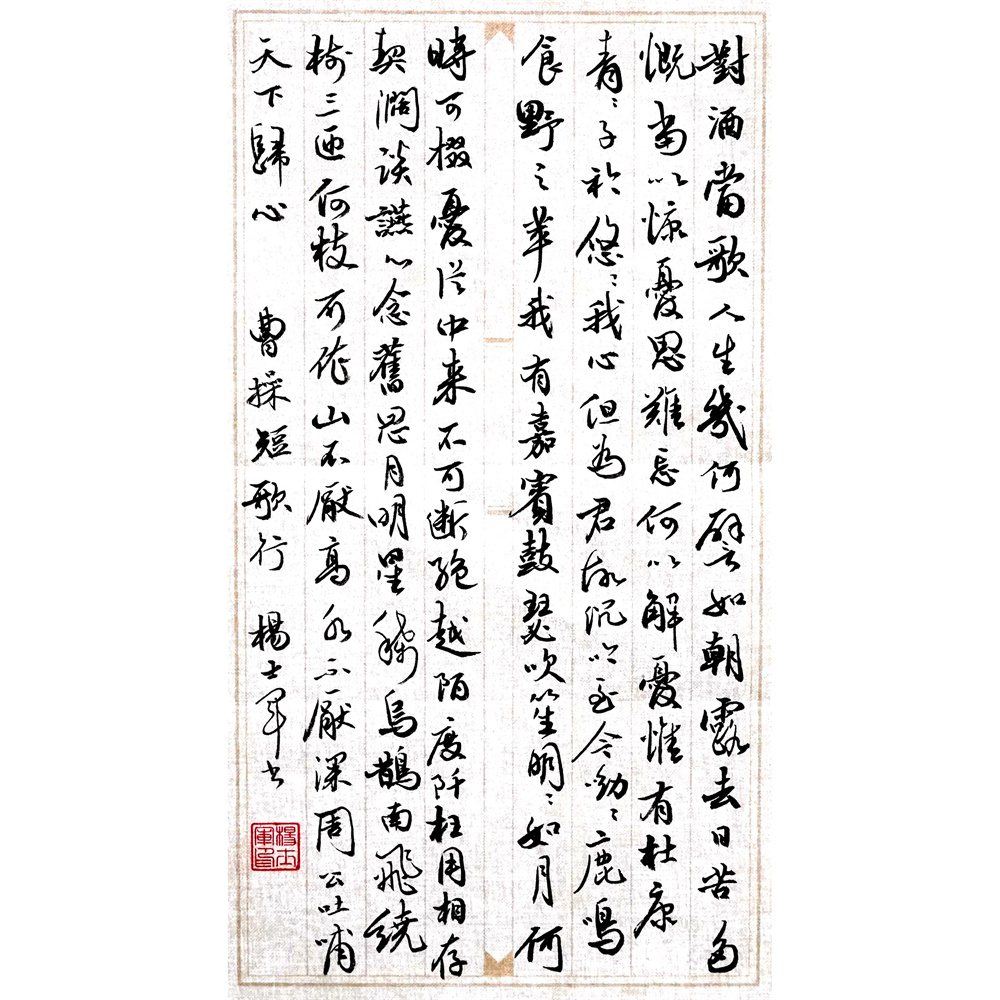 對酒當歌人生幾何譬如朝露去日苦多
慨当以慷憂思難忘何以解憂惟有杜康
青〻子衿悠〻我心但為君故沉吟至今呦〻鹿鳴
食野之苹我有嘉賓鼓瑟吹笙明〻如月何
時可掇憂從中来不可断絶越陌度阡枉用相存
契濶談讌心念舊恩月明星稀烏鵲南飛繞
樹三匝何枝可依山不厭高水不厭深周公吐哺
天下歸心 曹操短歌行 楊士軍書
楊士軍印